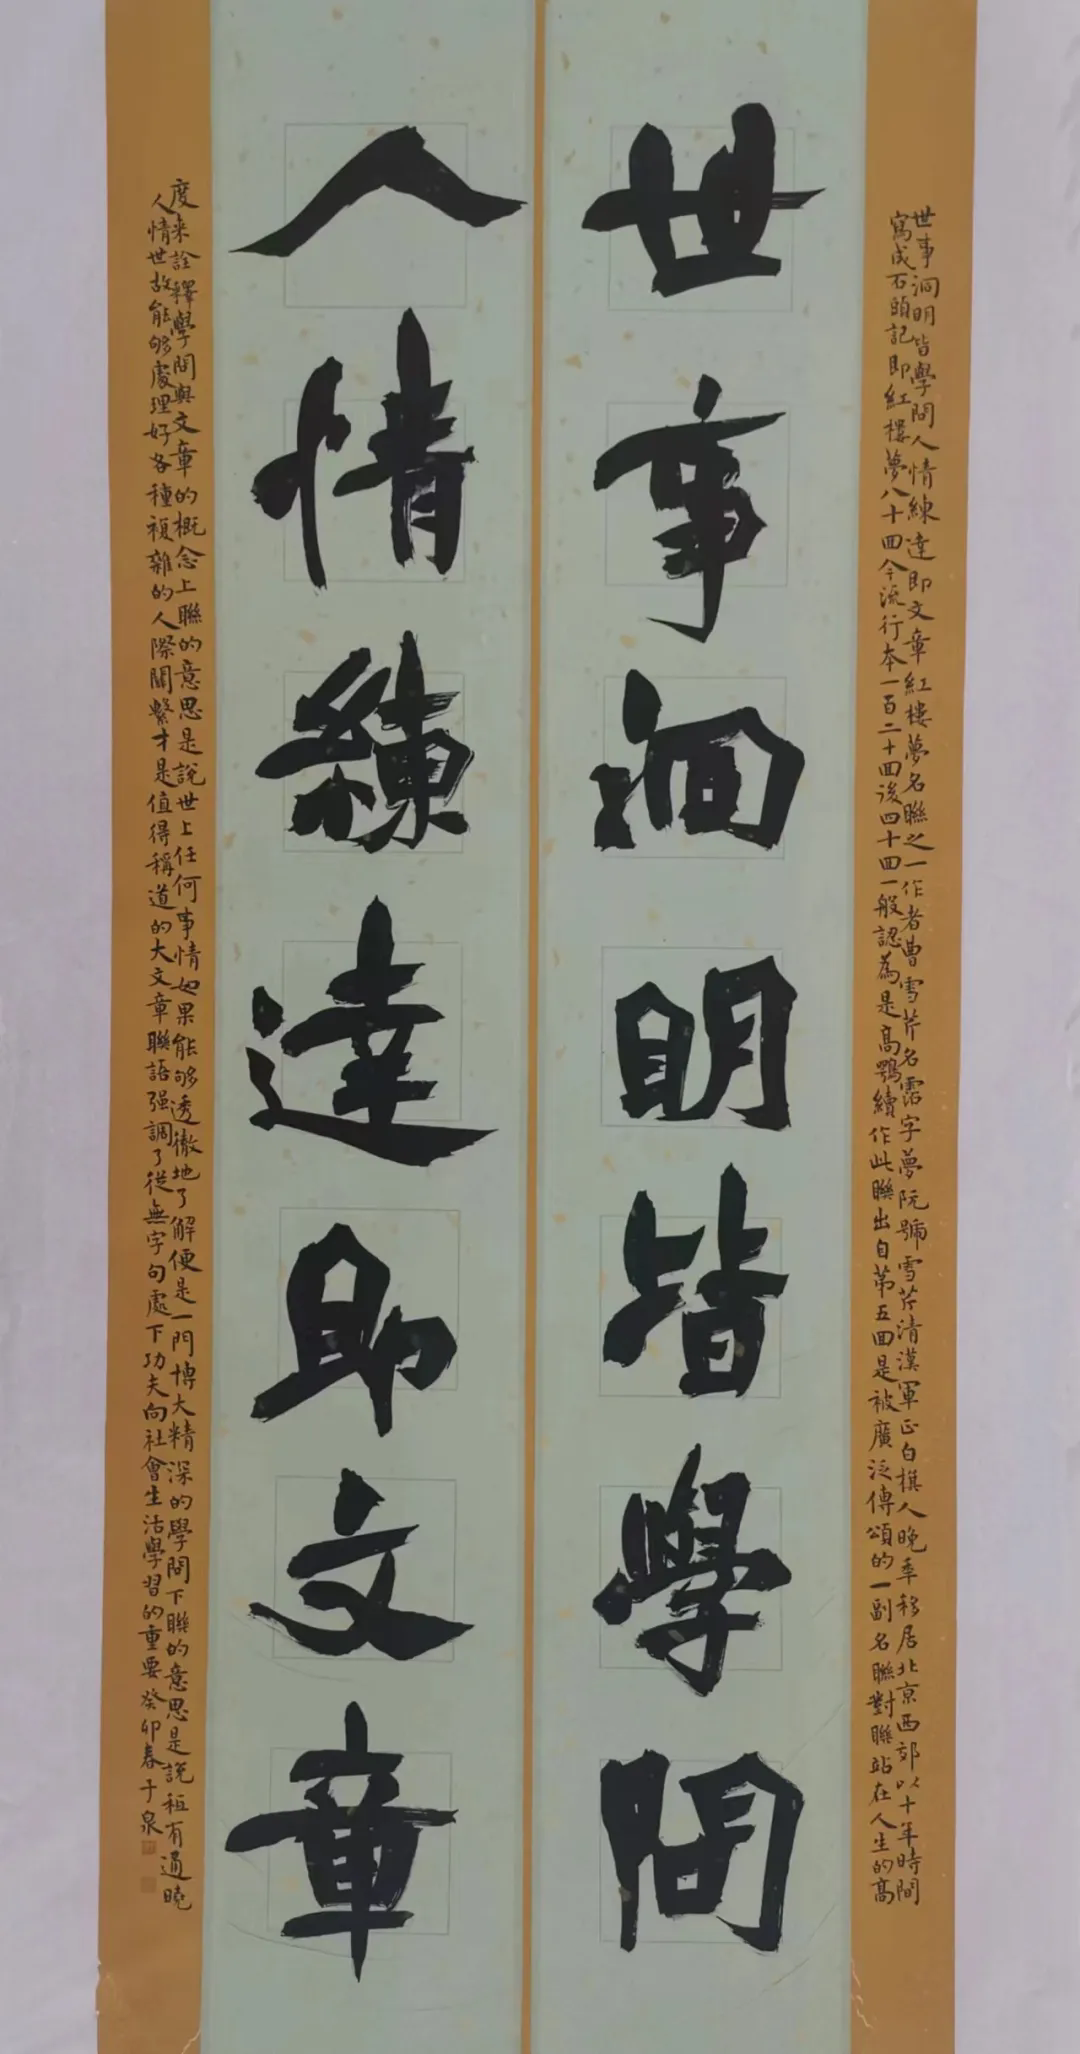 世事洞明皆學問
人情練達即文章
世事洞明皆學問人情練達即文章紅樓夢名聯之一作者曹雪芹名霑字夢阮號雪芹清漢軍正白旗人晚年移居北京西郊以十年時間
寫成石頭記即紅樓夢八十回今流行本一百二十回後四十回一般認為是高鶚續作此聯出自第五回是被廣泛傳頌的一副名聯對聯站在人生的高
度来詮釋學問與文章的概念上聯的意思是說世上任何事情如果能够透徹地了解便是一門博大精深的學問下聯的意思是說秖有通曉
人情世故能够處理好各種複雜的人際關繫才是值得稱道的大文章聯語强調了從無字句處下功夫向社會生活學習的重要癸卯春于泉